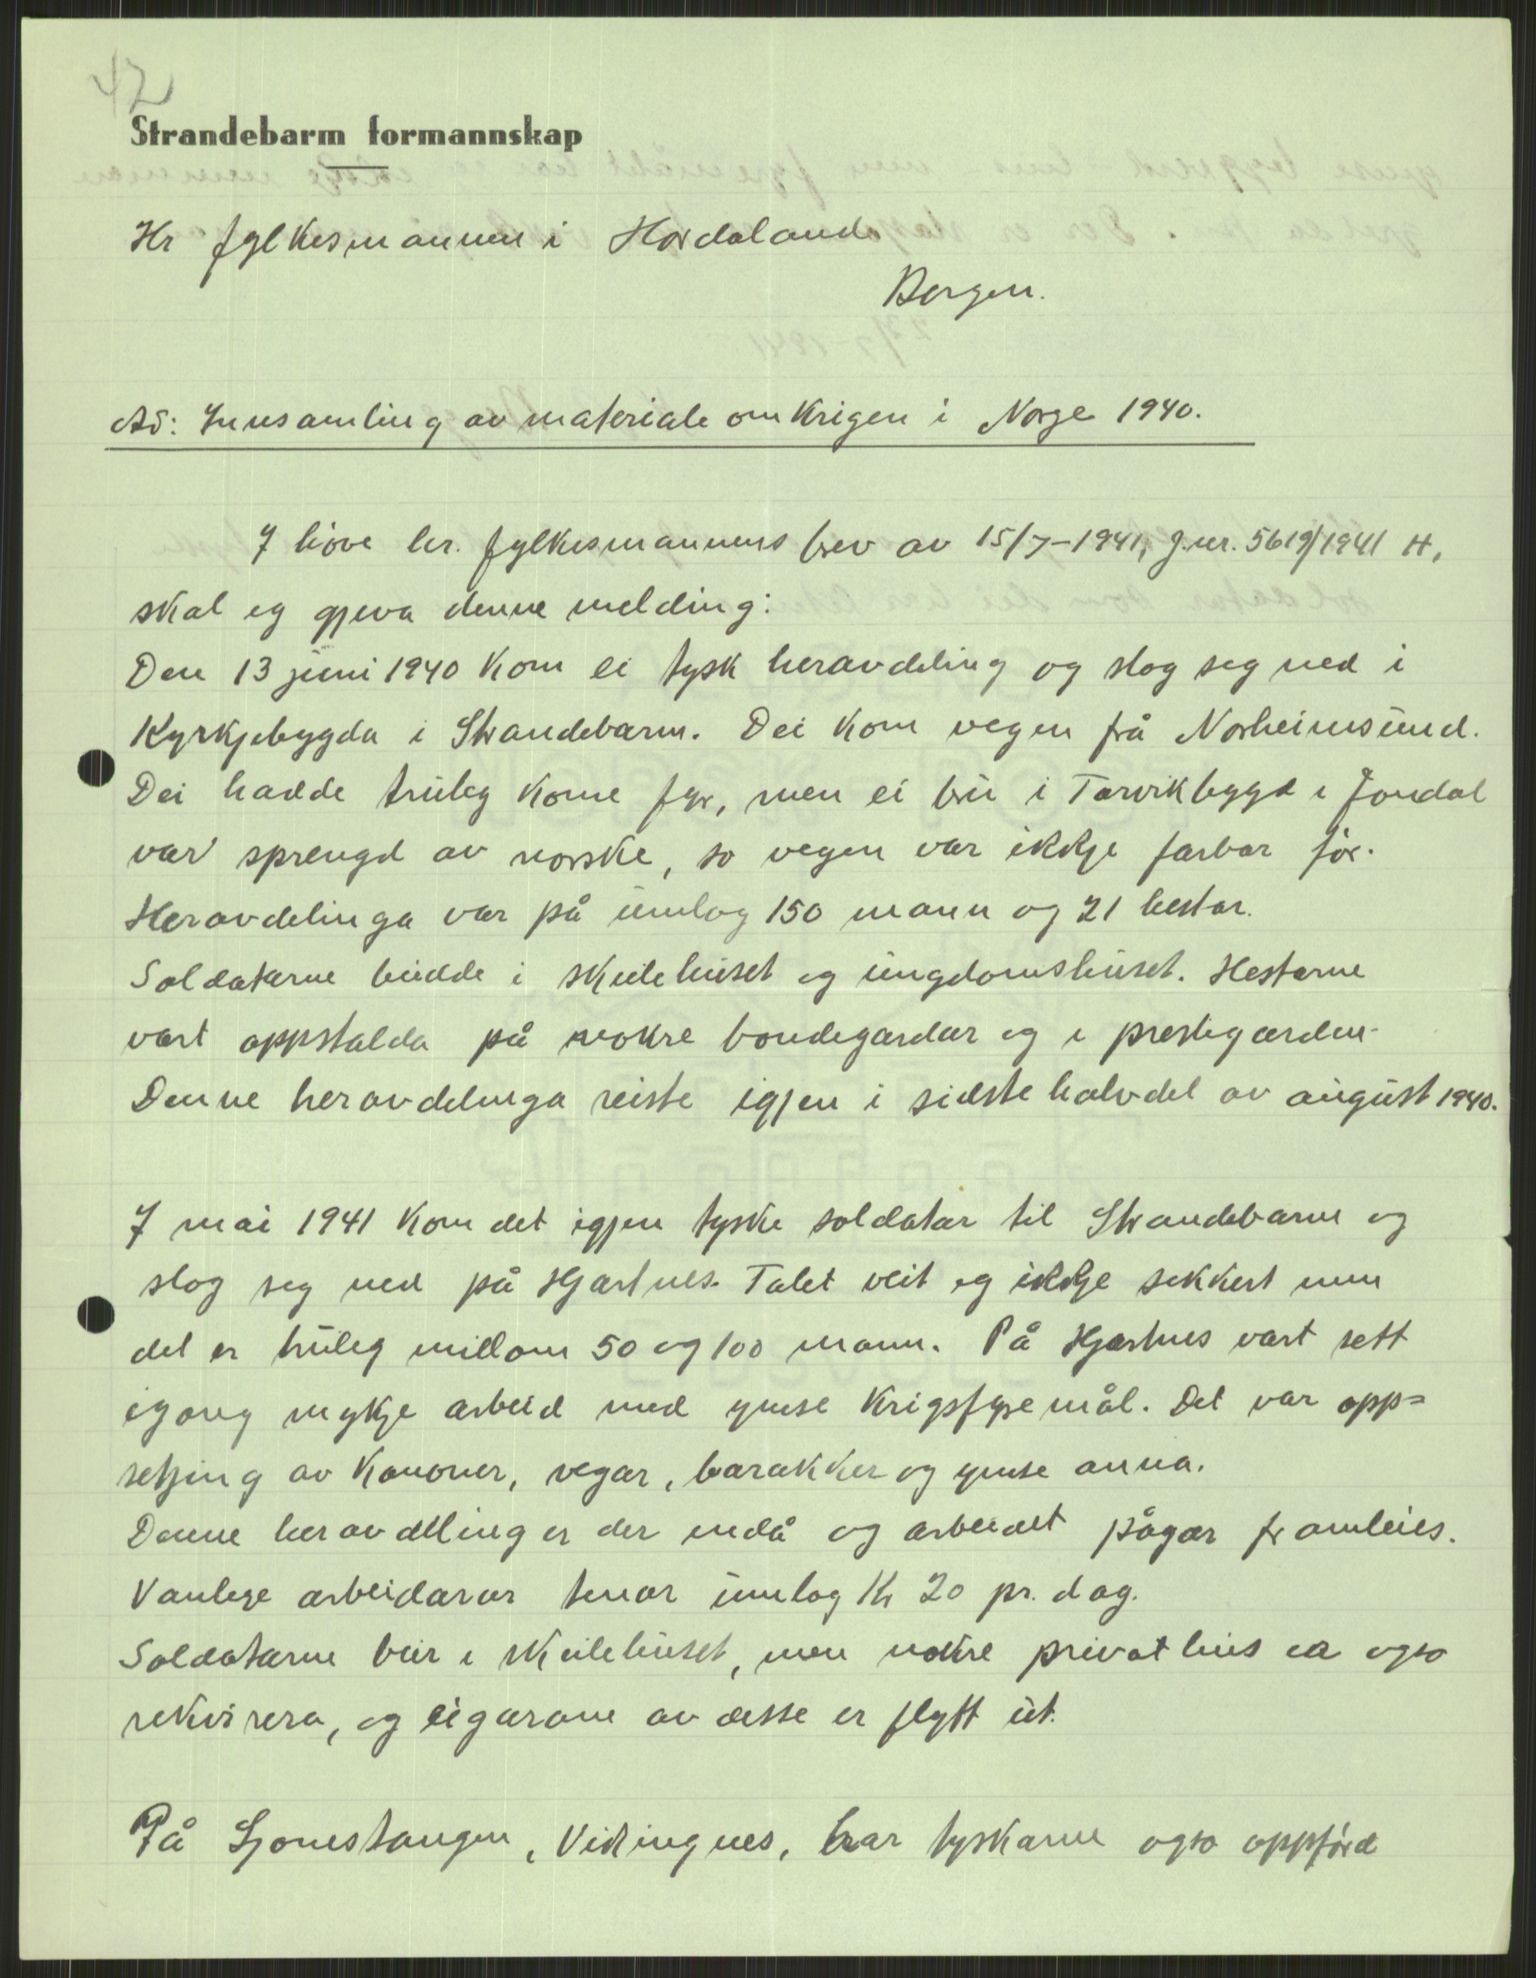 42
Strandebarm formannskap
Hr fylkesmannen i Hordaland
Bergen.
Ad: Innsamling av materiale om krigen i Norge 1940.
I høve hr. fylkesmannens brev av 15/7-1941, j.nr. 5619/1941 H,
skal eg gjeva denne melding:
Den 13 juni 1940 kom ei tysk heravdeling og slog seg ned i
Kyrkjebygda i Strandebarm. Dei kom vegen frå Norheimsund.
Dei hadde truleg kome fyr, men ei bru i Torvikbygd i Jondal
var sprengd av norske, so vegen var ikkje farbar før.
Heravdelinga var på umlag 150 mann og 21 hestar.
Soldatarne budde i skulehuset og ungdomshuset. Hestarne
vart oppstalda på nokre bondegardar og i prestegarden.
Denne heravdelinga reiste igjen i sidste halvdel av august 1940.
I mai 1941 kom det igjen tyske soldatar til Strandebarm og
slog seg ned på Hjartnes. Talet veit eg ikkje sikkert men
det er truleg millom 50 og 100 mann. På Hjartnes vart sett
igang mykje arbeid med ymse krigsfyremål. Det var opp=
setjing av kanoner, vegar, barakker og ymse anna.
Denne heravdeling er der endå og arbeidet pågår framleies.
Vanlege arbeidarar tener umlag kr 20 pr. dag.
Soldatarne bur i skulehuset, men nokre privathus er ogso
rekvirera, og eigarane av desse er flytt ut.
På Ljonestangen, Vikingnes, har tyskarne ogso oppførd